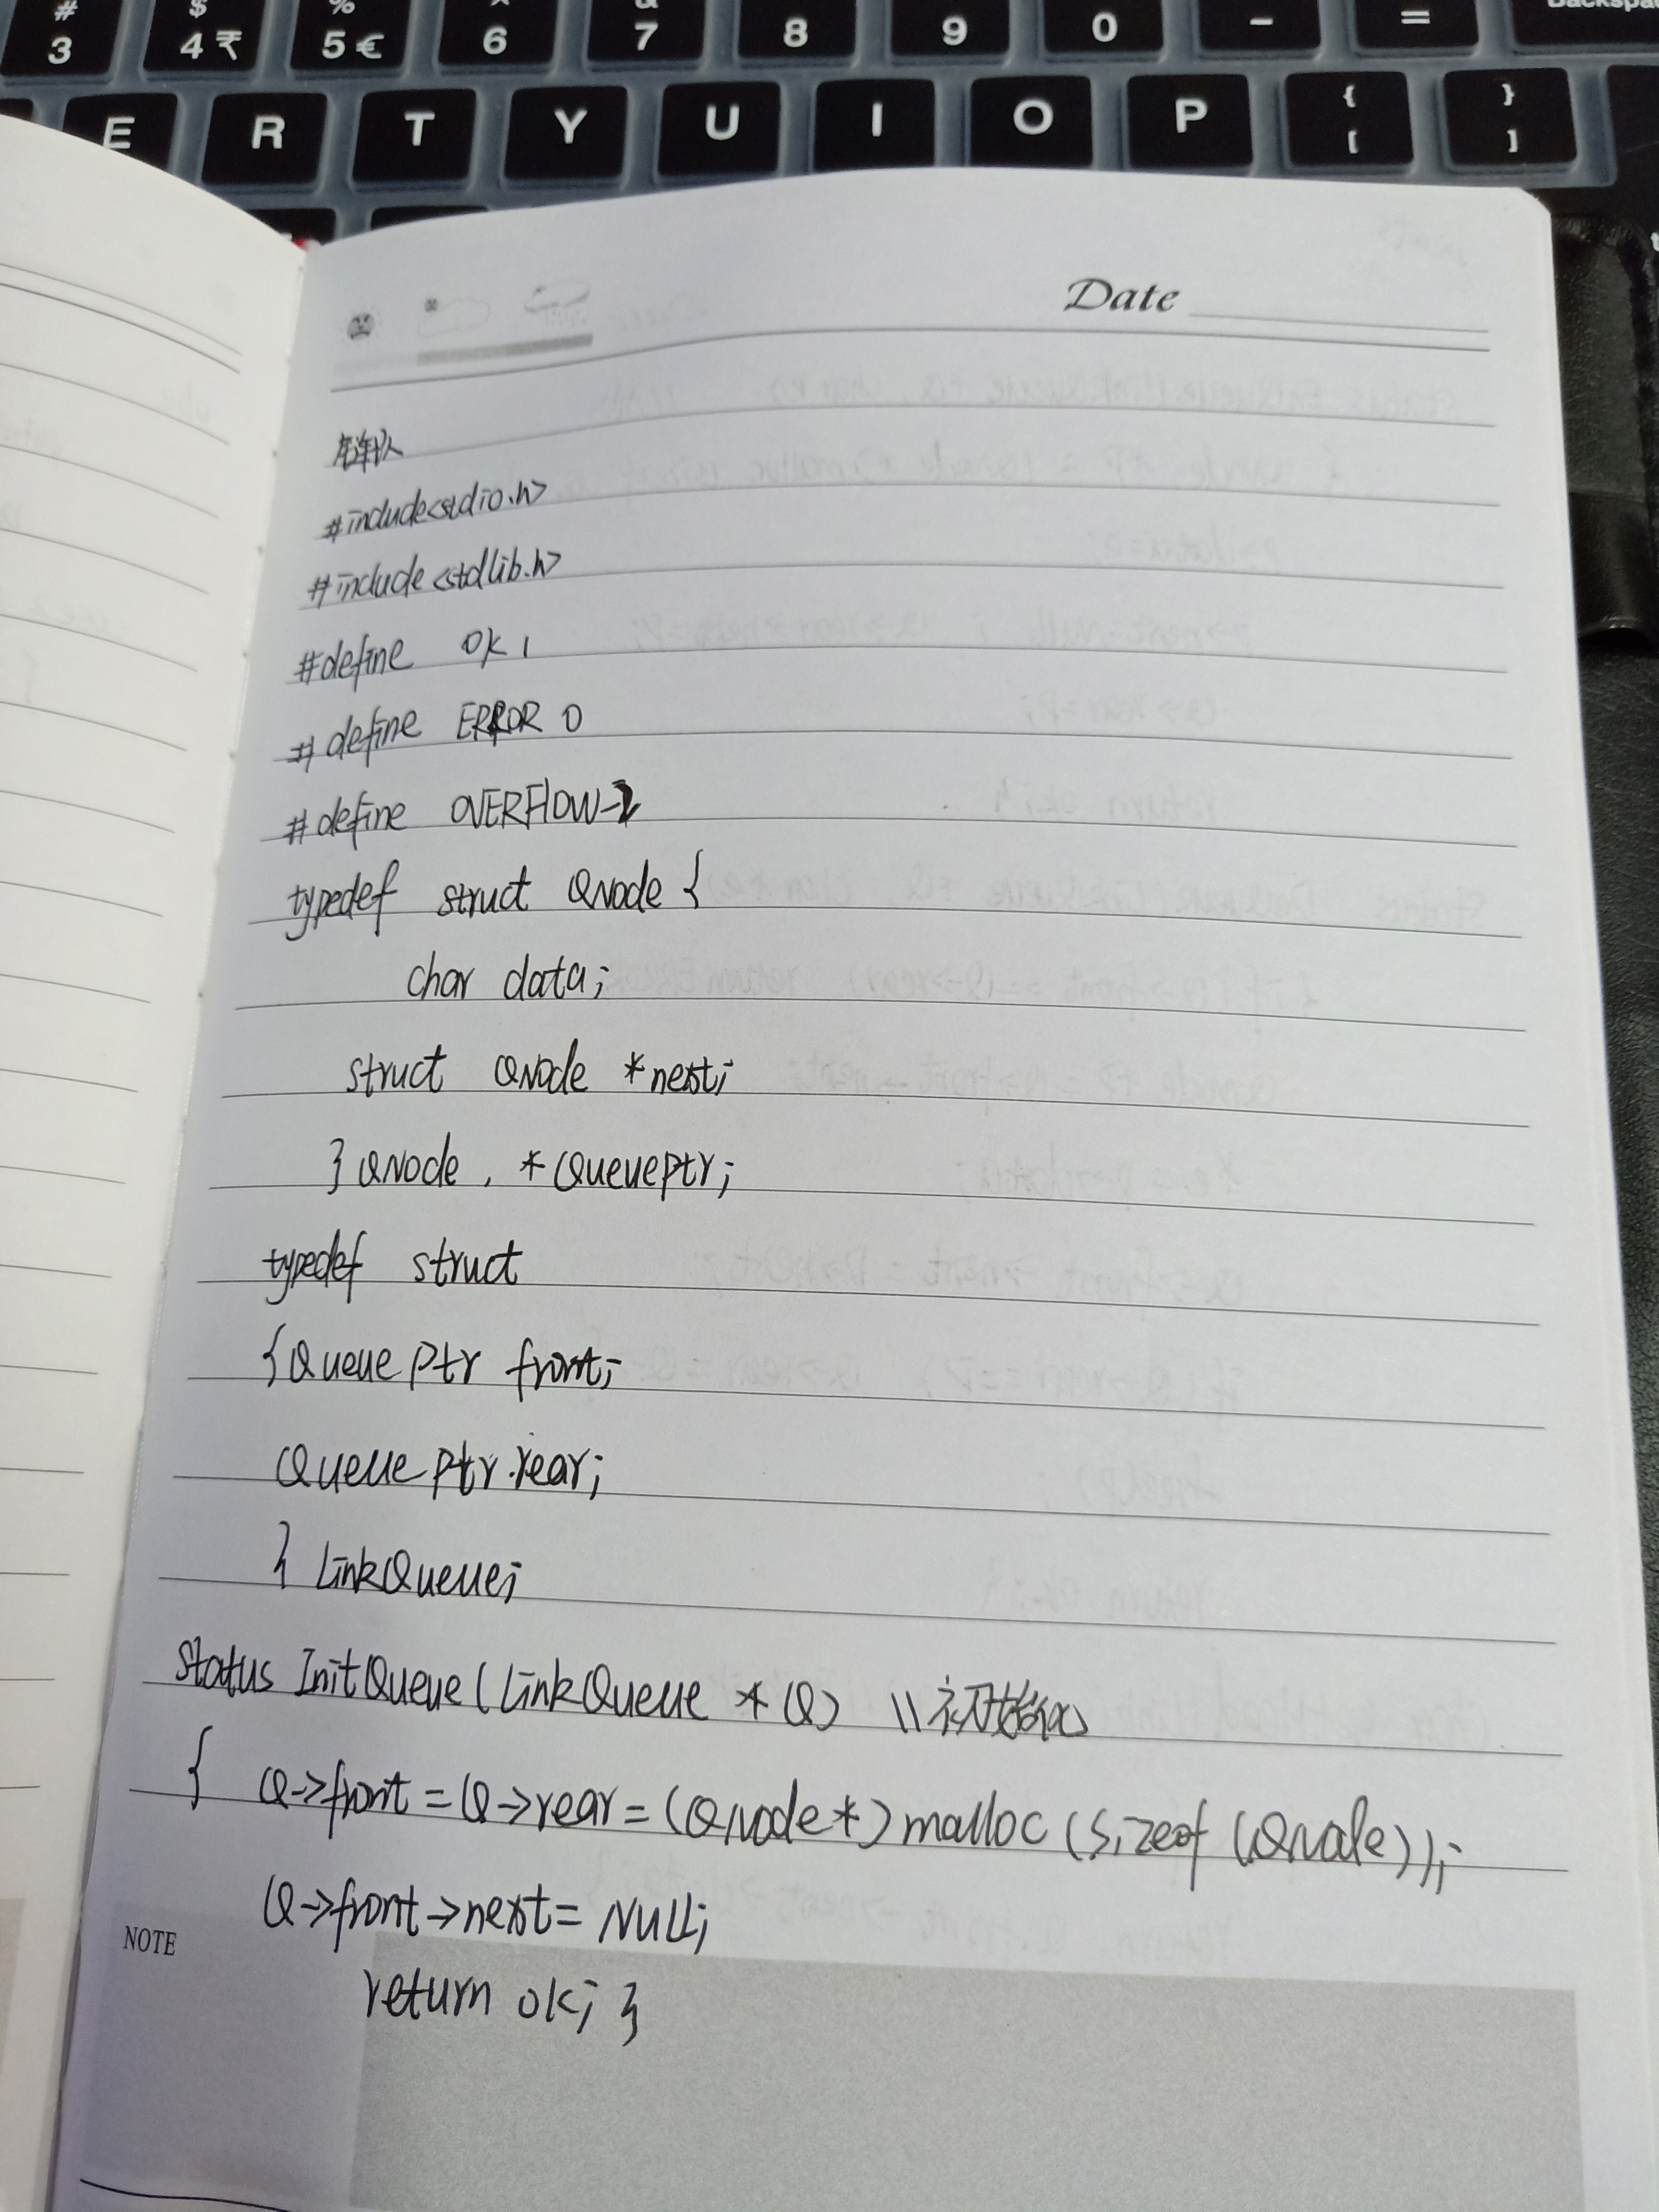 # 3
$ 4 ₹
% 5 €
^ 6
& 7
8
9
0
-
=
Backspace
E R T Y U I O P { [ } ]
Date
链队
#include<stdio.h>
#include<stdlib.h>
#define OK 1
#define ERROR 0
#define OVERFLOW-2
typedef struct QNode {
char data;
struct QNode *next;
} QNode, *QueuePtr;
typedef struct
{QueuePtr front;
QueuePtr rear;
} LinkQueue;
Status InitQueue(LinkQueue *Q) \\初始化
{ Q->front=Q->rear=(QNode*)malloc(sizeof(QNode));
Q->front->next=NULL;
return OK; }
NOTE